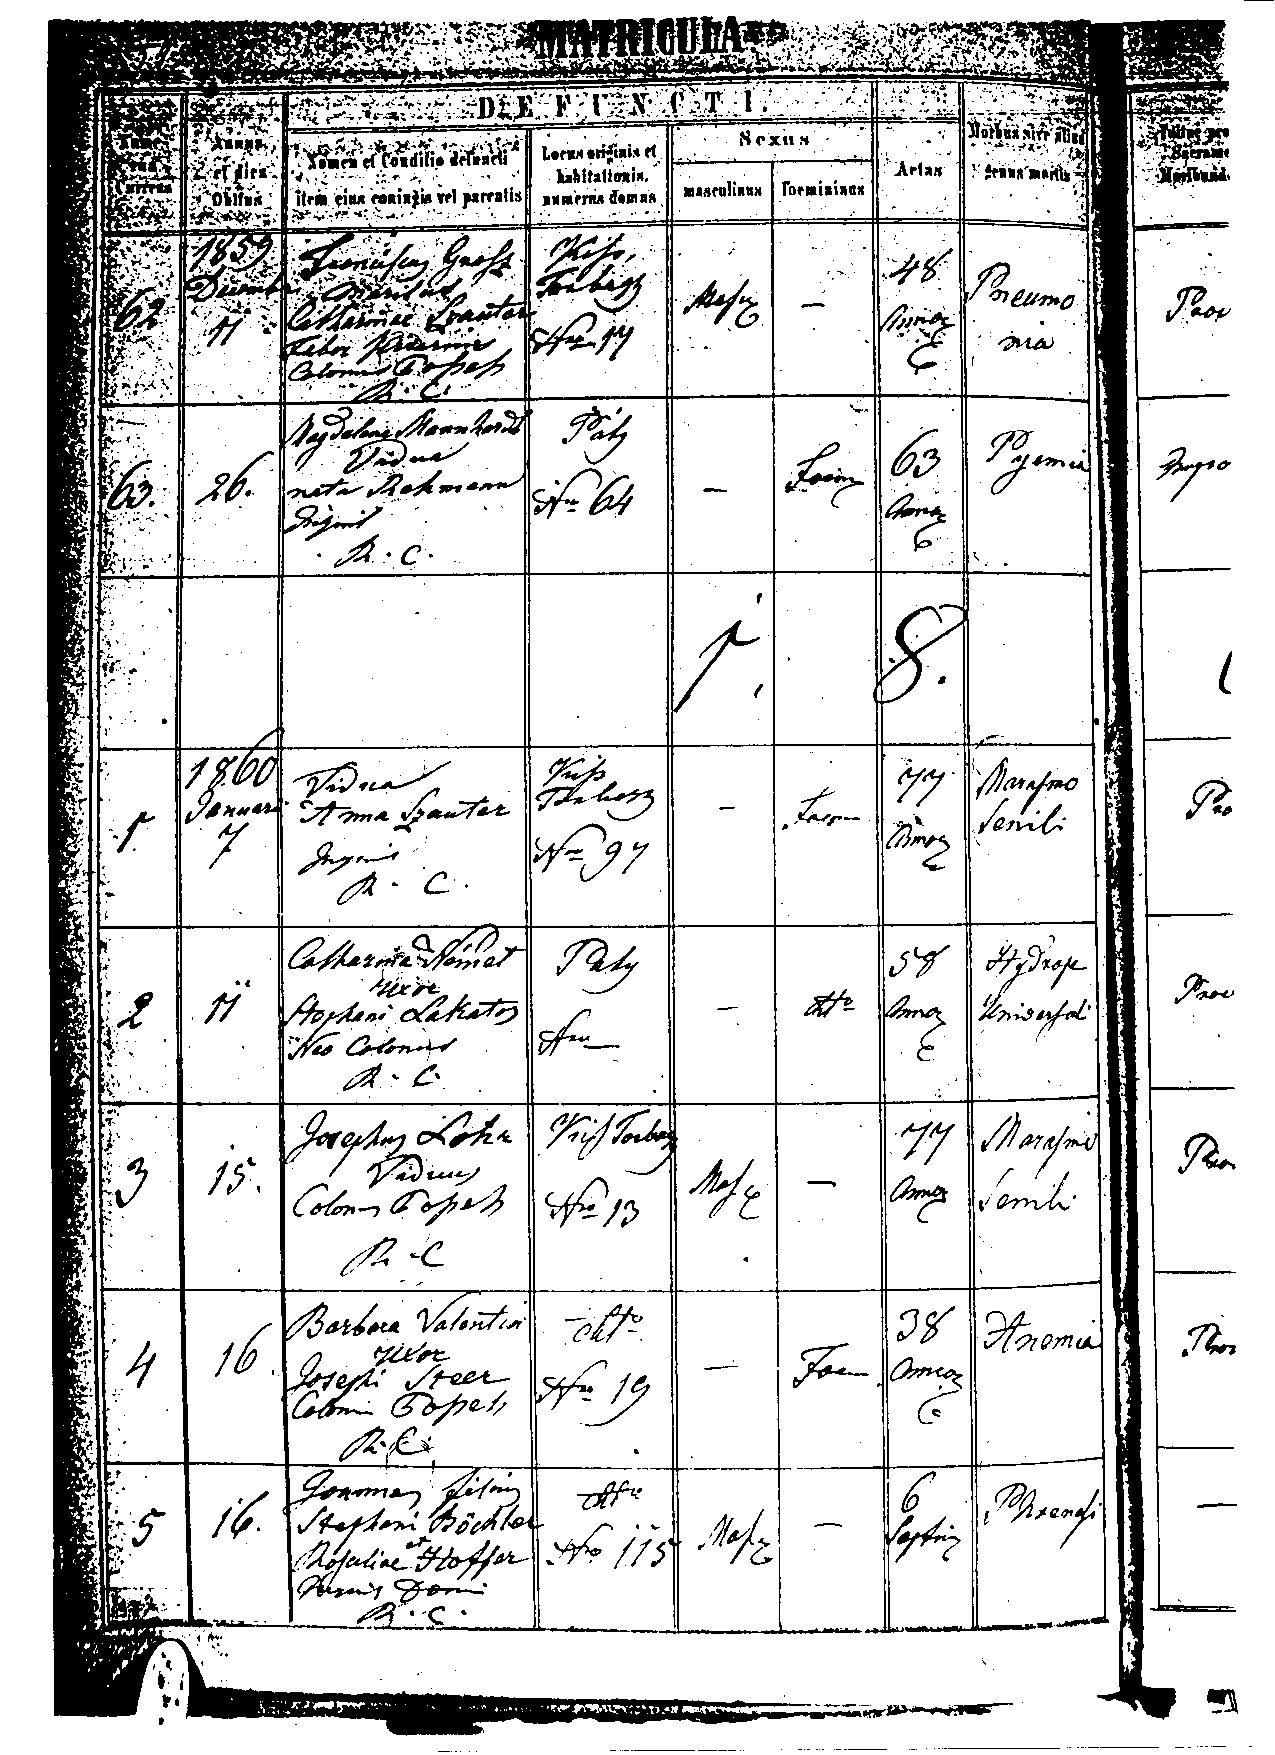 MATRICULA
DEFUNCTI.
Numerus Currens
Annus et dies Obitus
Nomen et Conditio defuncti
item eius coniugis vel parentis
Locus originis et
habitationis,
numerus domus
Sexus
masculinus
foemininus
Aetas
Morbus sive aliud
genus mortis
62
1859
Decemb
11
Franciscus Grosz
Maritus
Catharinae Szauter
Colonus Töpeli
R. C.
Kiss,
Torbagy
Nro 17
Masc
—
48
Annor
Pneumo
nia
Prov
63.
26.
Magdalena Mannhardt
Vidua
nata Rehmann
Inquil
R. C.
Páty
Nro 64
—
Foem
63
Annor
Pyemia
1860
Januari
1.
7
Vidua
Anna Szauter
Inquil
R. C.
Kiss
Torbagy
Nro 97
—
Foem
77
Annor
Marasmo
Senili
Pro
2
11
Catharina Német
uxor
Stephani Lakatos
Neo Colonus
R. C.
Paty
Nro —
—
dtto
58
Annor
Hydrope
Universali
Prov
3
15.
Josephus
Viduus
Colonus Töpeli
R. C
Kiss Torbagy
Nro 13
Masc
—
77
Annor
Marasmo
Senili
Prov
4
16
Barbara Valentin
uxor
Josephi Steer
Coloni Töpeli
R. C.
dtto
Nro 19
—
Foem
38
Annor
Anemia
Prov
5
16.
Joannes filius
Stephani Böchler
et
Rosaliae Hoffer
R. C.
dtto
Nro 115
Masc
—
6
Septim
Phrenesi
—